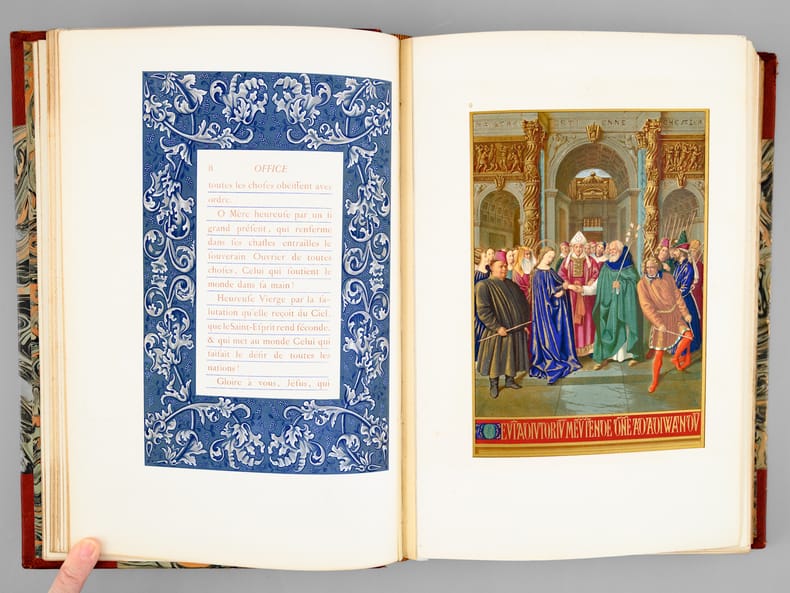 8 OFFICE
toutes les choſes obéiſſent avec
ordre.
O Mère heureuſe par un ſi
grand préſent, qui renferme
dans ſes chaſtes entrailles le
ſouverain Ouvrier de toutes
choſes, Celui qui ſoutient le
monde dans ſa main!
Heureuſe Vierge par la ſa-
lutation qu'elle reçoit du Ciel,
que le Saint-Eſprit rend féconde,
& qui met au monde Celui qui
faiſait le déſir de toutes les
nations!
Gloire à vous, Jéſus, qui
DEVS ADIVTORIV MEV INTENDE DNE AD ADIVVANDV